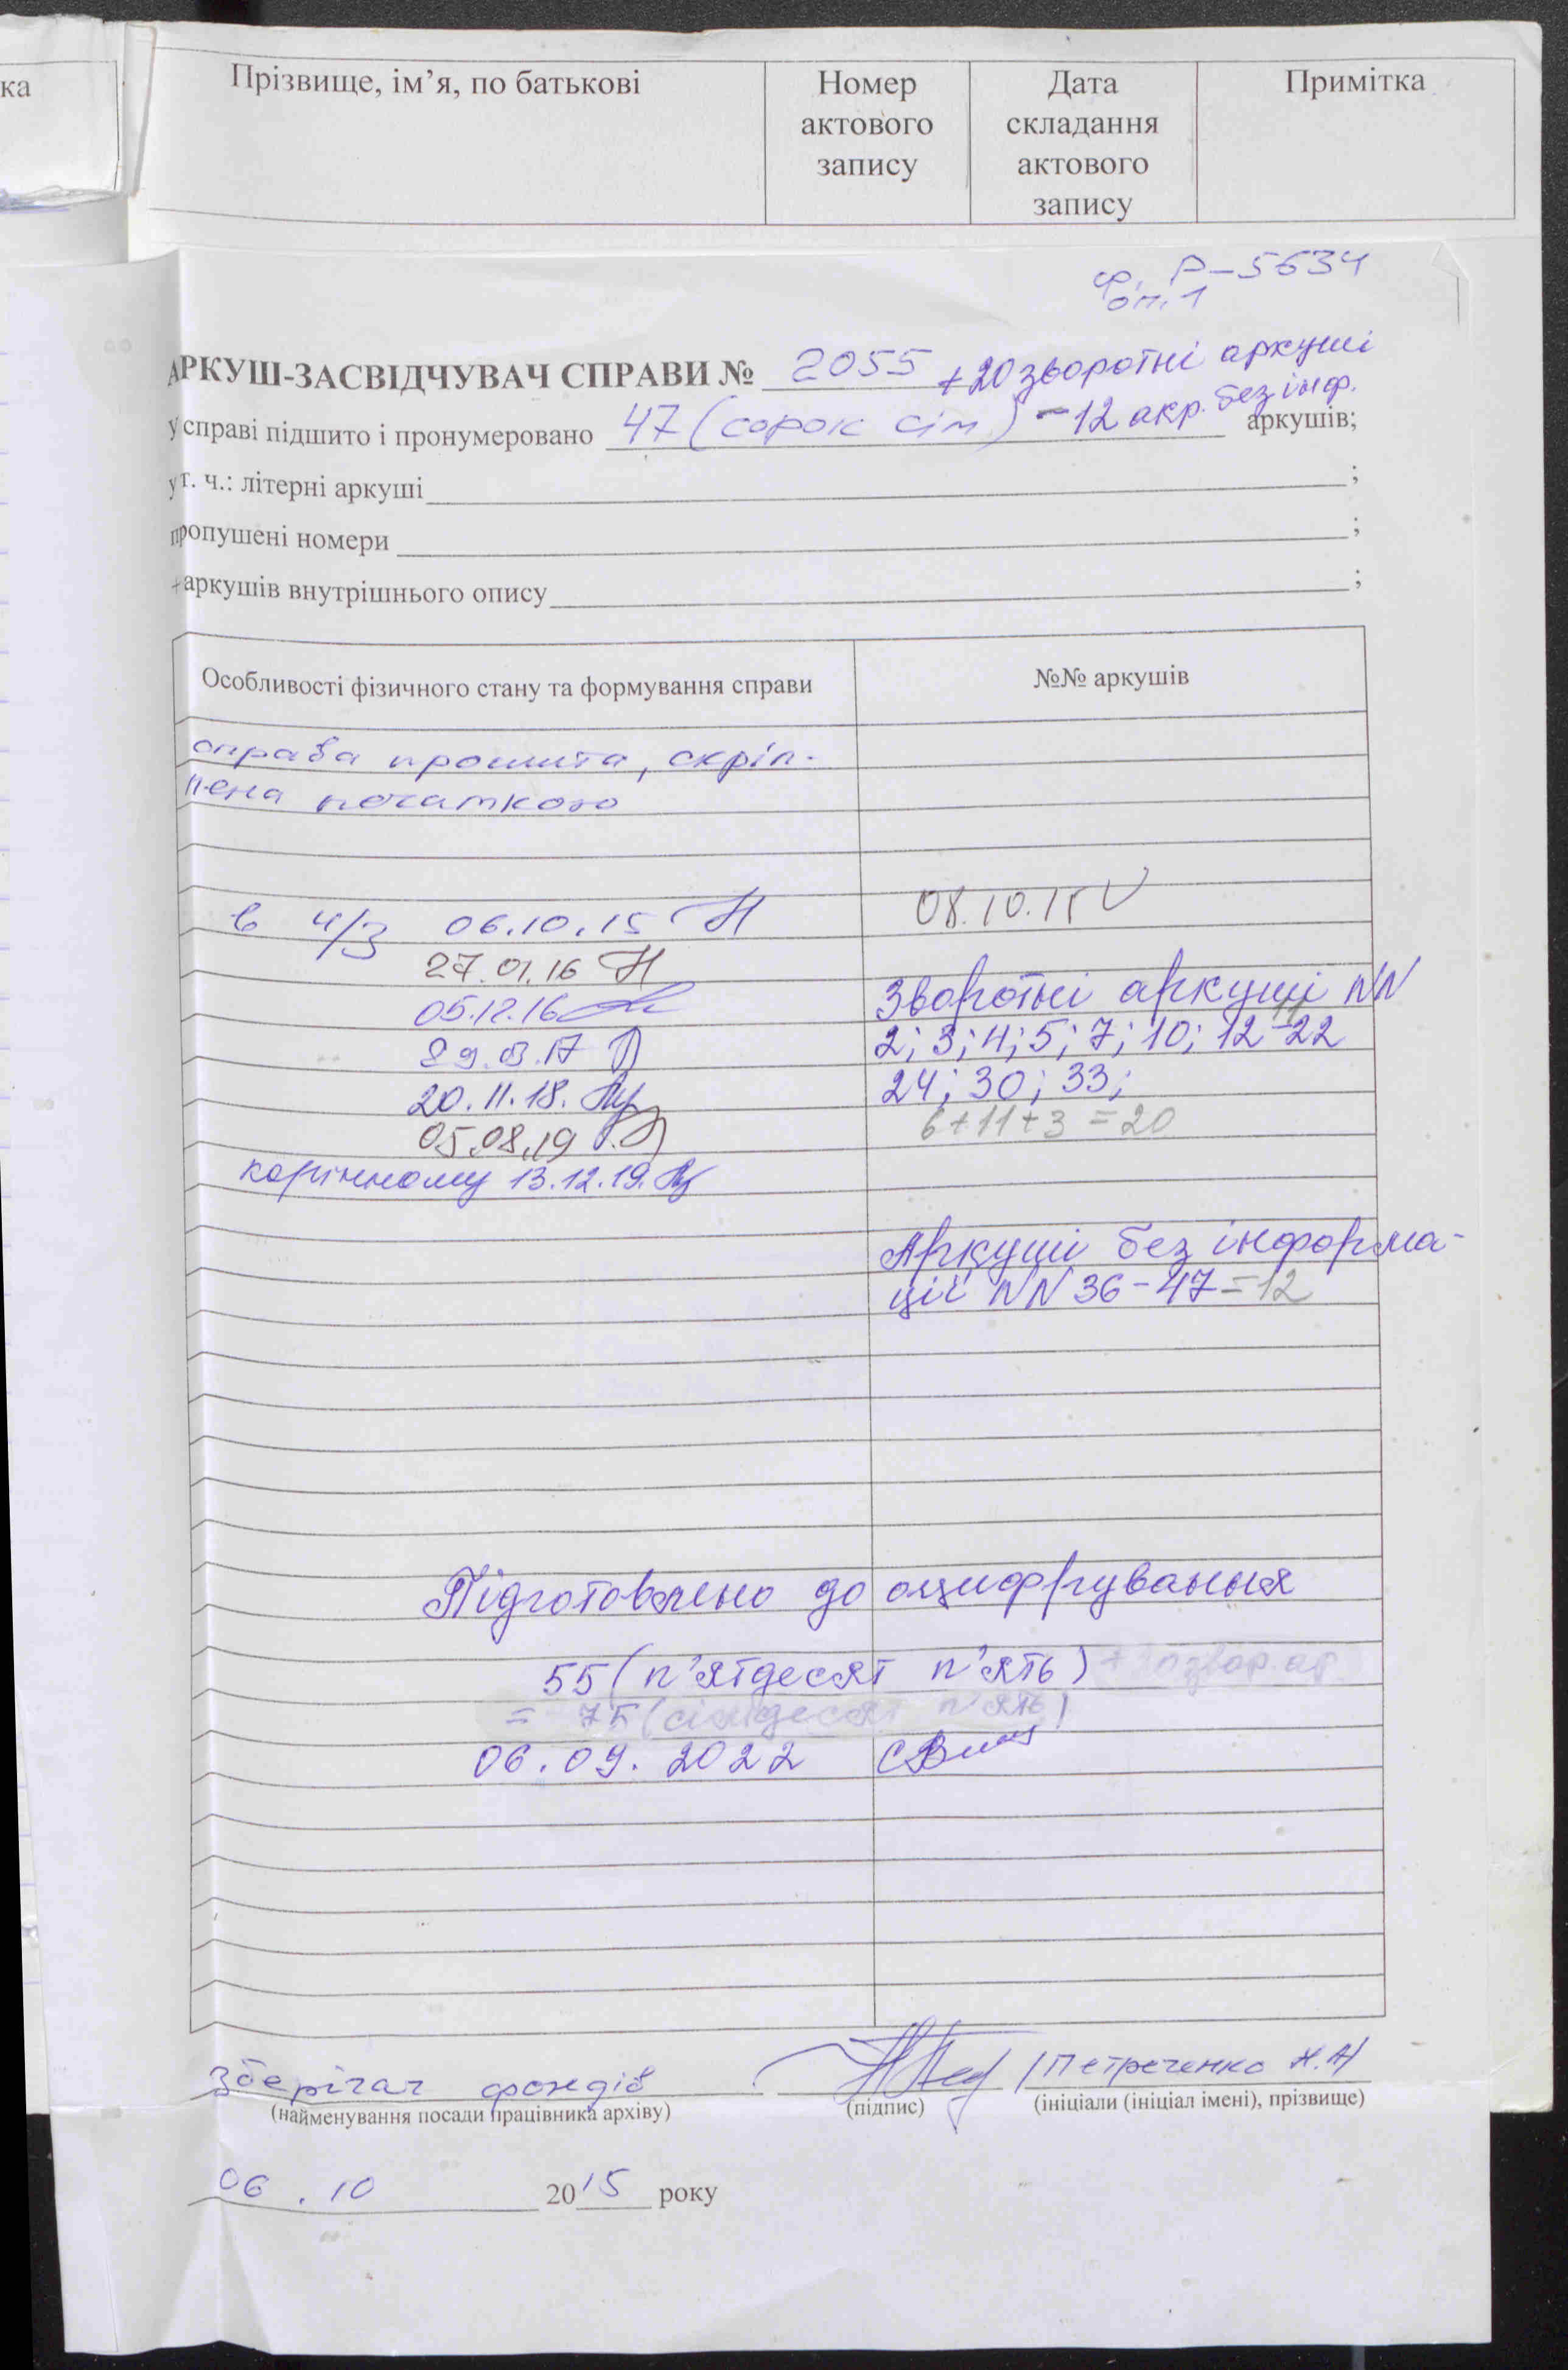 ка
Прізвище, ім’я, по батькові
Номер актового запису
Дата складання актового запису
Примітка
ф. Р-5634
оп. 1
АРКУШ-ЗАСВІДЧУВАЧ СПРАВИ № 2055 +20 зворотні аркуші
у справі підшито і пронумеровано 47 (сорок сім) -12 акр. без інф. аркушів;
у т. ч.: літерні аркуші ;
пропущені номери ;
+аркушів внутрішнього опису ;
Особливості фізичного стану та формування справи
№№ аркушів
справа прошита, скріп-
лена печаткою
в ч/з 06.10.15
08.10.15
27.01.16
05.12.16
Зворотні аркуші NN
11
2; 3; 4; 5; 7; 10; 12-22
20.11.18.
24; 30; 33;
05.08.19
6+11+3=20
корінному 13.12.19.
Аркуші без інформа-
ції NN 36-47=12
Підготовлено до оцифрування
55 (п’ятдесят п’ять)
= 75 (сімдесят п’ять)
06.09.2022
Зберігач фондів
/Петреченко Н.А/
(найменування посади працівника архіву)
(підпис)
(ініціали (ініціал імені), прізвище)
06.10 2015 року